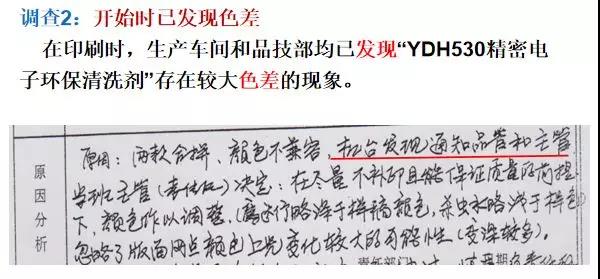 调查2：开始时已发现色差
在印刷时，生产车间和品技部均已发现“YDH530精密电
子环保清洗剂”存在较大色差的现象。
原因分析
原因：两款合拼、颜色不兼容，机台发现通知品管和主管
当班主管（责任人）决定：在尽量不补印且能保证质量的前提
下，颜色作以调整，（磨床行略深于样稿颜色，杀虫水略浅于样色
忽略了版面网点颜色上光变化较大的可能性（变深较多）。
责任部门